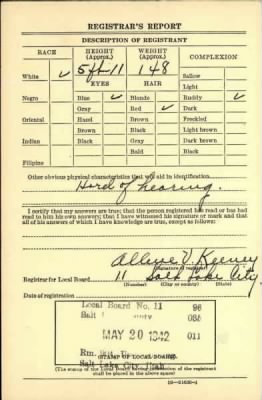 REGISTRAR'S REPORT
DESCRIPTION OF REGISTRANT
RACE HEIGHT (Approx.) WEIGHT (Approx.) COMPLEXION
White ✓ 5 ft 11 148 Sallow
EYES HAIR Light
Negro Blue ✓ Blonde Ruddy ✓
Gray Red ✓ Dark
Oriental Hazel Brown Freckled
Brown Black Light brown
Indian Black Gray Dark brown
Bald Black
Filipino
Other obvious physical characteristics that will aid in identification
Hard of hearing.
I certify that my answers are true; that the person registered has read or has had
read to him his own answers; that I have witnessed his signature or mark and that
all of his answers of which I have knowledge are true, except as follows:
(Signature of registrar)
Registrar for Local Board 11 Salt Lake City
(Number) (City or county) (State)
Date of registration
Local Board No. 11 96
Salt
MAY 20 1942 011
Rm.
(STAMP OF LOCAL BOARD)
Salt Lake City Utah
(The stamp of the Local Board having jurisdiction of the registrant
shall be placed in the above space)